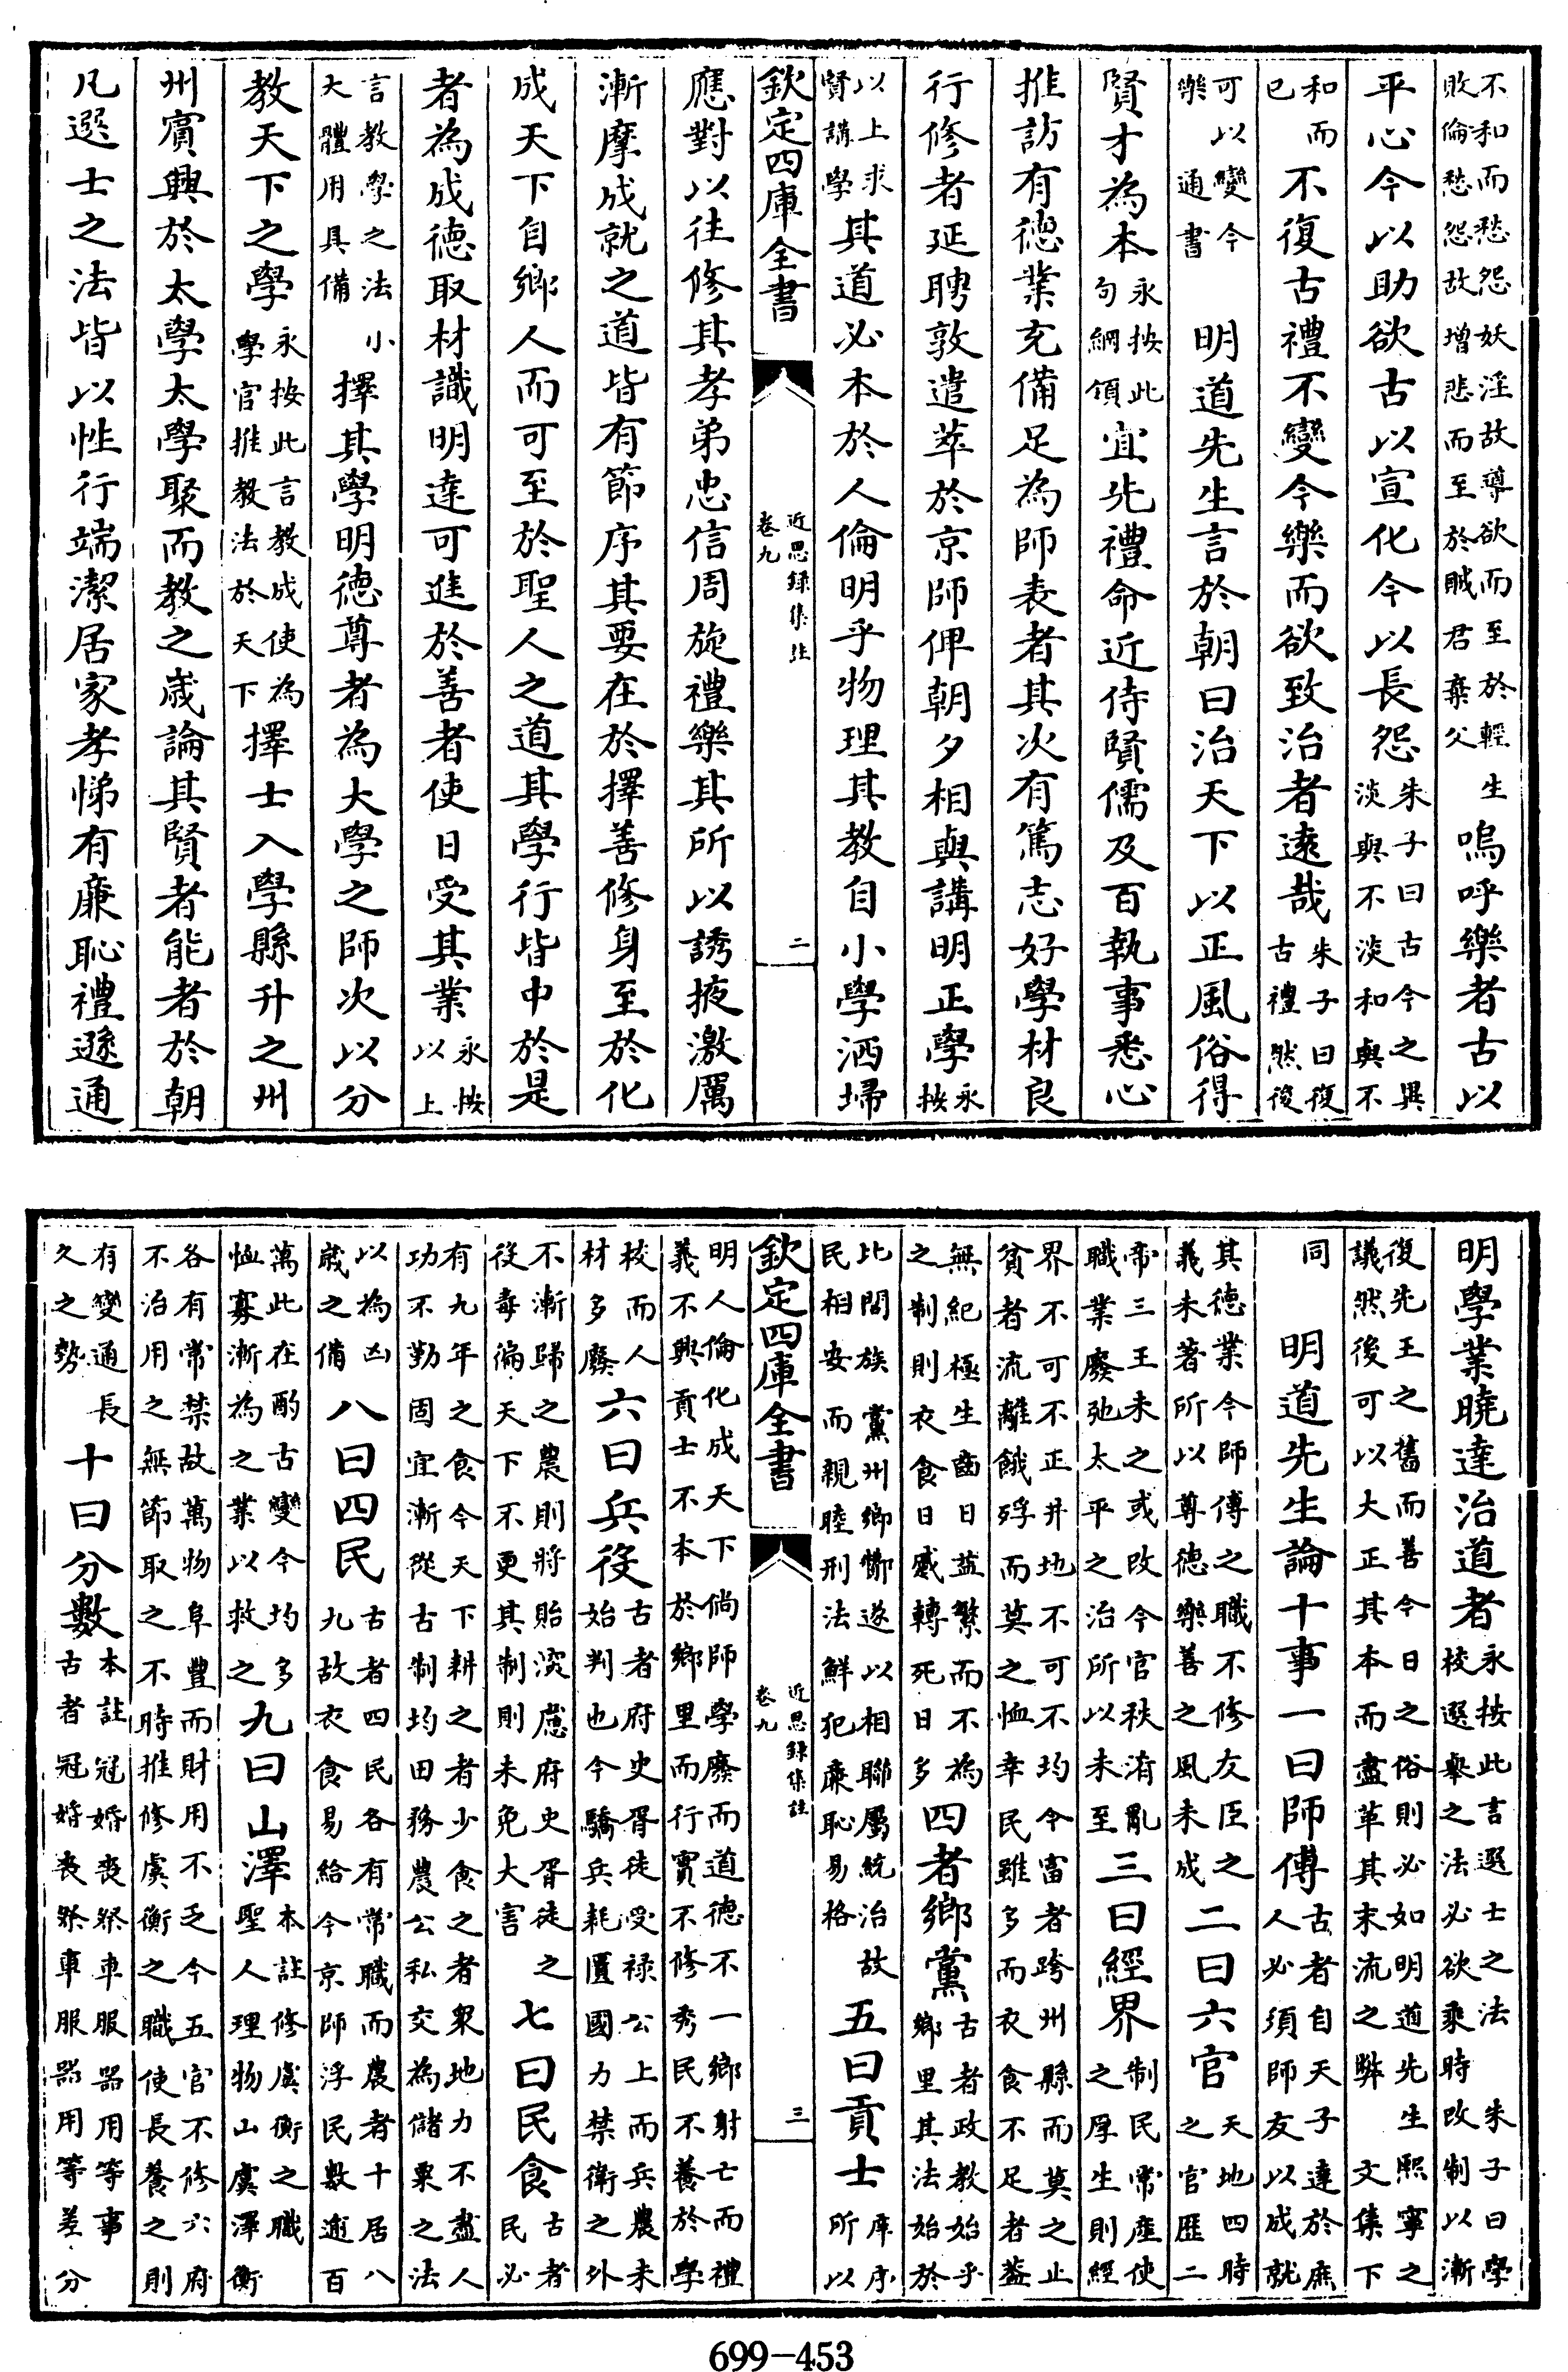 不和而愁怨妖淫故導欲而至於輕生敗倫愁怨故增悲而至於賊君棄父嗚呼樂者古以
平心今以助欲古以宣化今以長怨朱子曰古今之異淡與不淡和與不
和而已不復古禮不變今樂而欲致治者遠哉朱子曰復古禮然後
可以變今樂通書　明道先生言於朝曰治天下以正風俗得
賢才為本永按此句綱領宜先禮命近侍賢儒及百執事悉心
推訪有德業充備足為師表者其次有篤志好學材良
行修者延聘敦遣萃於京師俾朝夕相與講明正學永按
以上求賢講學其道必本於人倫明乎物理其教自小學洒埽
欽定四庫全書　近思録集註卷九　二
應對以往修其孝弟忠信周旋禮樂其所以誘掖激厲
漸摩成就之道皆有節序其要在於擇善修身至於化
成天下自鄉人而可至於聖人之道其學行皆中於是
者為成德取材識明達可進於善者使日受其業永按以上
言教學之法小大體用具備擇其學明德尊者為大學之師次以分
教天下之學永按此言教成使為學官推教法於天下擇士入學縣升之州
州賓興於太學太學聚而教之歲論其賢者能者於朝
凡選士之法皆以性行端潔居家孝悌有廉恥禮遜通
明學業曉達治道者永按此言選士之法朱子曰學校選舉之法必欲乘時改制以漸
復先王之舊而善今日之俗則必如明道先生熙寧之議然後可以大正其本而盡革其末流之弊文集下
同　明道先生論十事一曰師傅古者自天子達於庶人必須師友以成就
其德業今師傅之職不修友臣之義未著所以尊德樂善之風未成二曰六官天地四時之官歴二
帝三王未之或改今官秩淆亂職業廢弛太平之治所以未至三曰經界制民常產使之厚生則經
界不可不正井地不可不均今富者跨州縣而莫之止貧者流離餓殍而莫之恤幸民雖多而衣食不足者蓋
無紀極生齒日益繁而不為之制則衣食日蹙轉死日多四者鄉黨古者政教始乎鄉里其法始於
比閭族黨州鄉酇遂以相聯屬統治故民相安而親睦刑法鮮犯廉恥易格五曰貢士庠序所以
欽定四庫全書　近思録集註卷九　三
明人倫化成天下倘師學廢而道德不一鄉射亡而禮義不興貢士不本於鄉里而行實不修秀民不養於學
校而人材多廢六曰兵役古者府史胥徒受禄公上而兵農未始判也今驕兵耗匱國力禁衛之外
不漸歸之農則將貽深慮府史胥徒之役毒徧天下不更其制則未免大害七曰民食古者民必
有九年之食今天下耕之者少食之者衆地力不盡人功不勤固宜漸從古制均田務農公私交為儲粟之法
以為凶歲之備八曰四民古者四民各有常職而農者十居八九故衣食易給今京師浮民數逾百
萬此在酌古變今均多恤寡漸為之業以救之九曰山澤本註修虞衡之職聖人理物山虞澤衡
各有常禁故萬物阜豐而財用不乏今五官不修六府不治用之無節取之不時推修虞衡之職使長養之則
有變通長久之勢十曰分數本註冠婚喪祭車服器用等事古者冠婚喪祭車服器用等差分
699-453